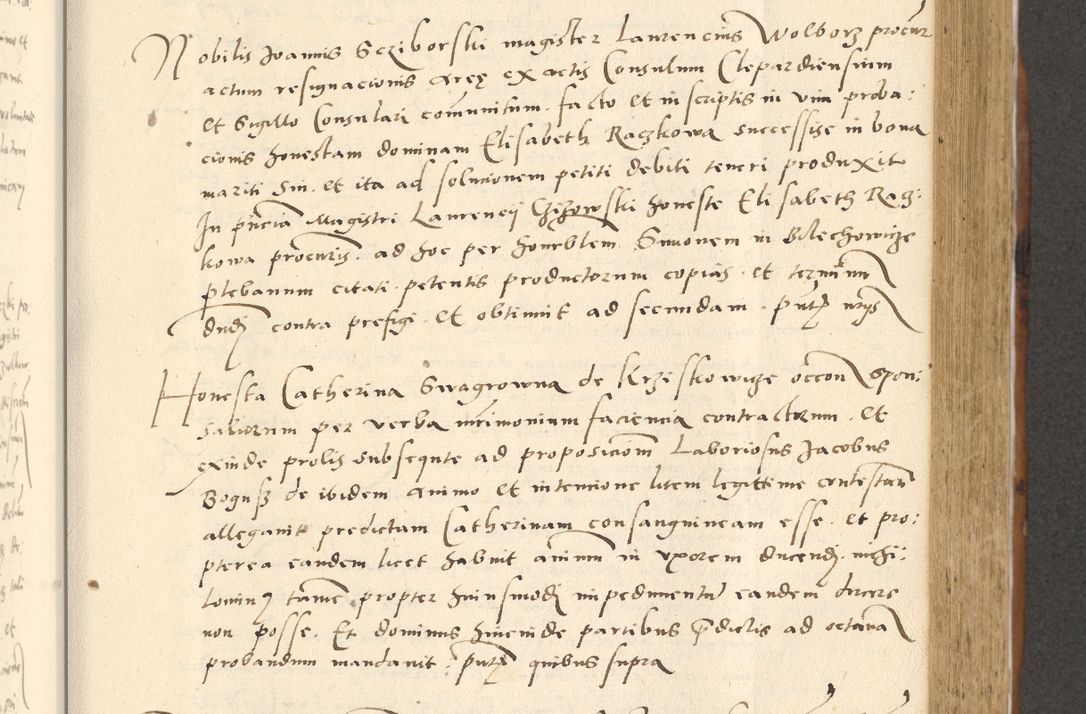 Nobilis Joannis Scziborski magister Laurencius Wolborz procur
actum resignacionis areę ex actis Consulum Clepardiensium
et Sigillo Consulari communitum . facto et in scriptis in vim proba:
cionis honestam dominam Elisabeth Raczkowa successisse in bona
mariti sui . et ita ad solucionem petiti debiti teneri produxit
In pñcia Magistri Laurencij Czizowski honeste Elisabeth Racz:
kowa procuris . ad hoc per honrblem Simonem in Bolechowicze
plebanum citati . petentis productorum copias . et terminum
contra prefigi . et obtinuit ad secundam .
Honesta Catherina Swagrowna de Krziskowicze occõn spon:
saliorum per verba mrimonium faciencia contractorum . et
exinde prolis subseqnte ad proposicionẽ Laboriosus Jacobus
Bogusz de ibidem animo et intencione litem legittime contestañ
allegavit predictam Catherinam consanguineam esse . et pro:
pterea eandem licet habuit animum in vxorem ducendi . nichi:
lominus tamen propter huiusmodi impedimentũ eandem ducere
non posse . Et dominus hincinde partibus p̃dictis ad octavã
probandum mandavit : quibus supra